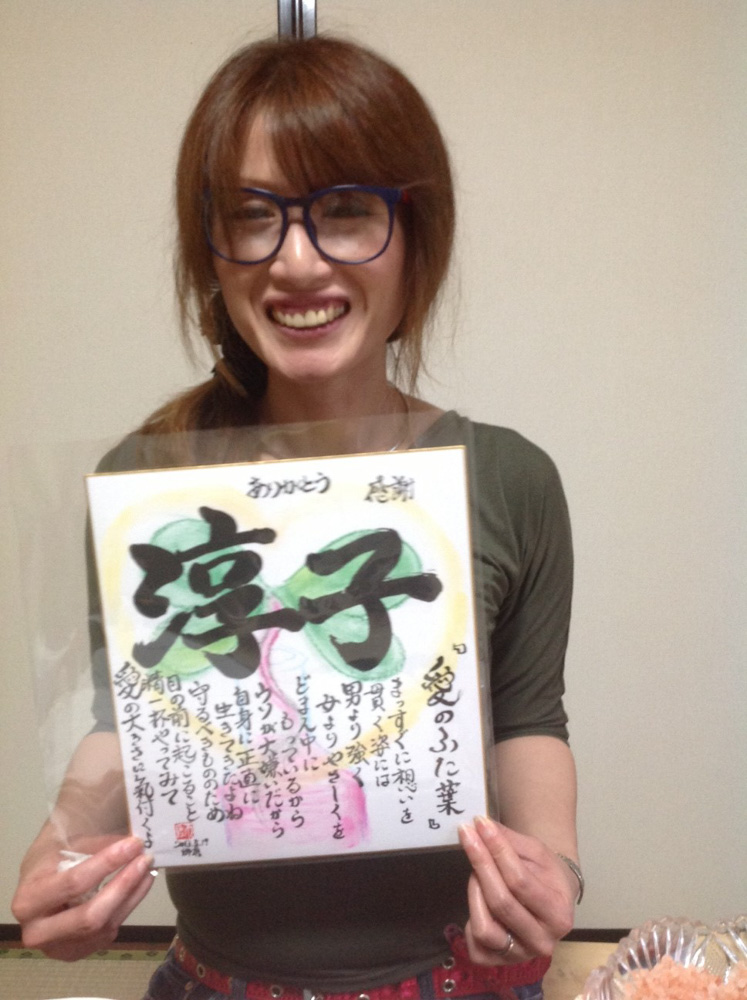 ありがとう 感謝
淳子
『愛のふた葉』
まっすぐに想いを
貫く姿には
男より強く
母よりやさしくを
どまん中に
もっているから
ウソが大嫌いだから
自身に正直に
生きてきたよね
守るべきもののため
目の前に起こること
精一杯やってみて
愛の大きさに気付くよ